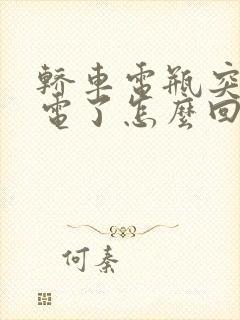 轎車電瓶突
電了怎麼回
何秦